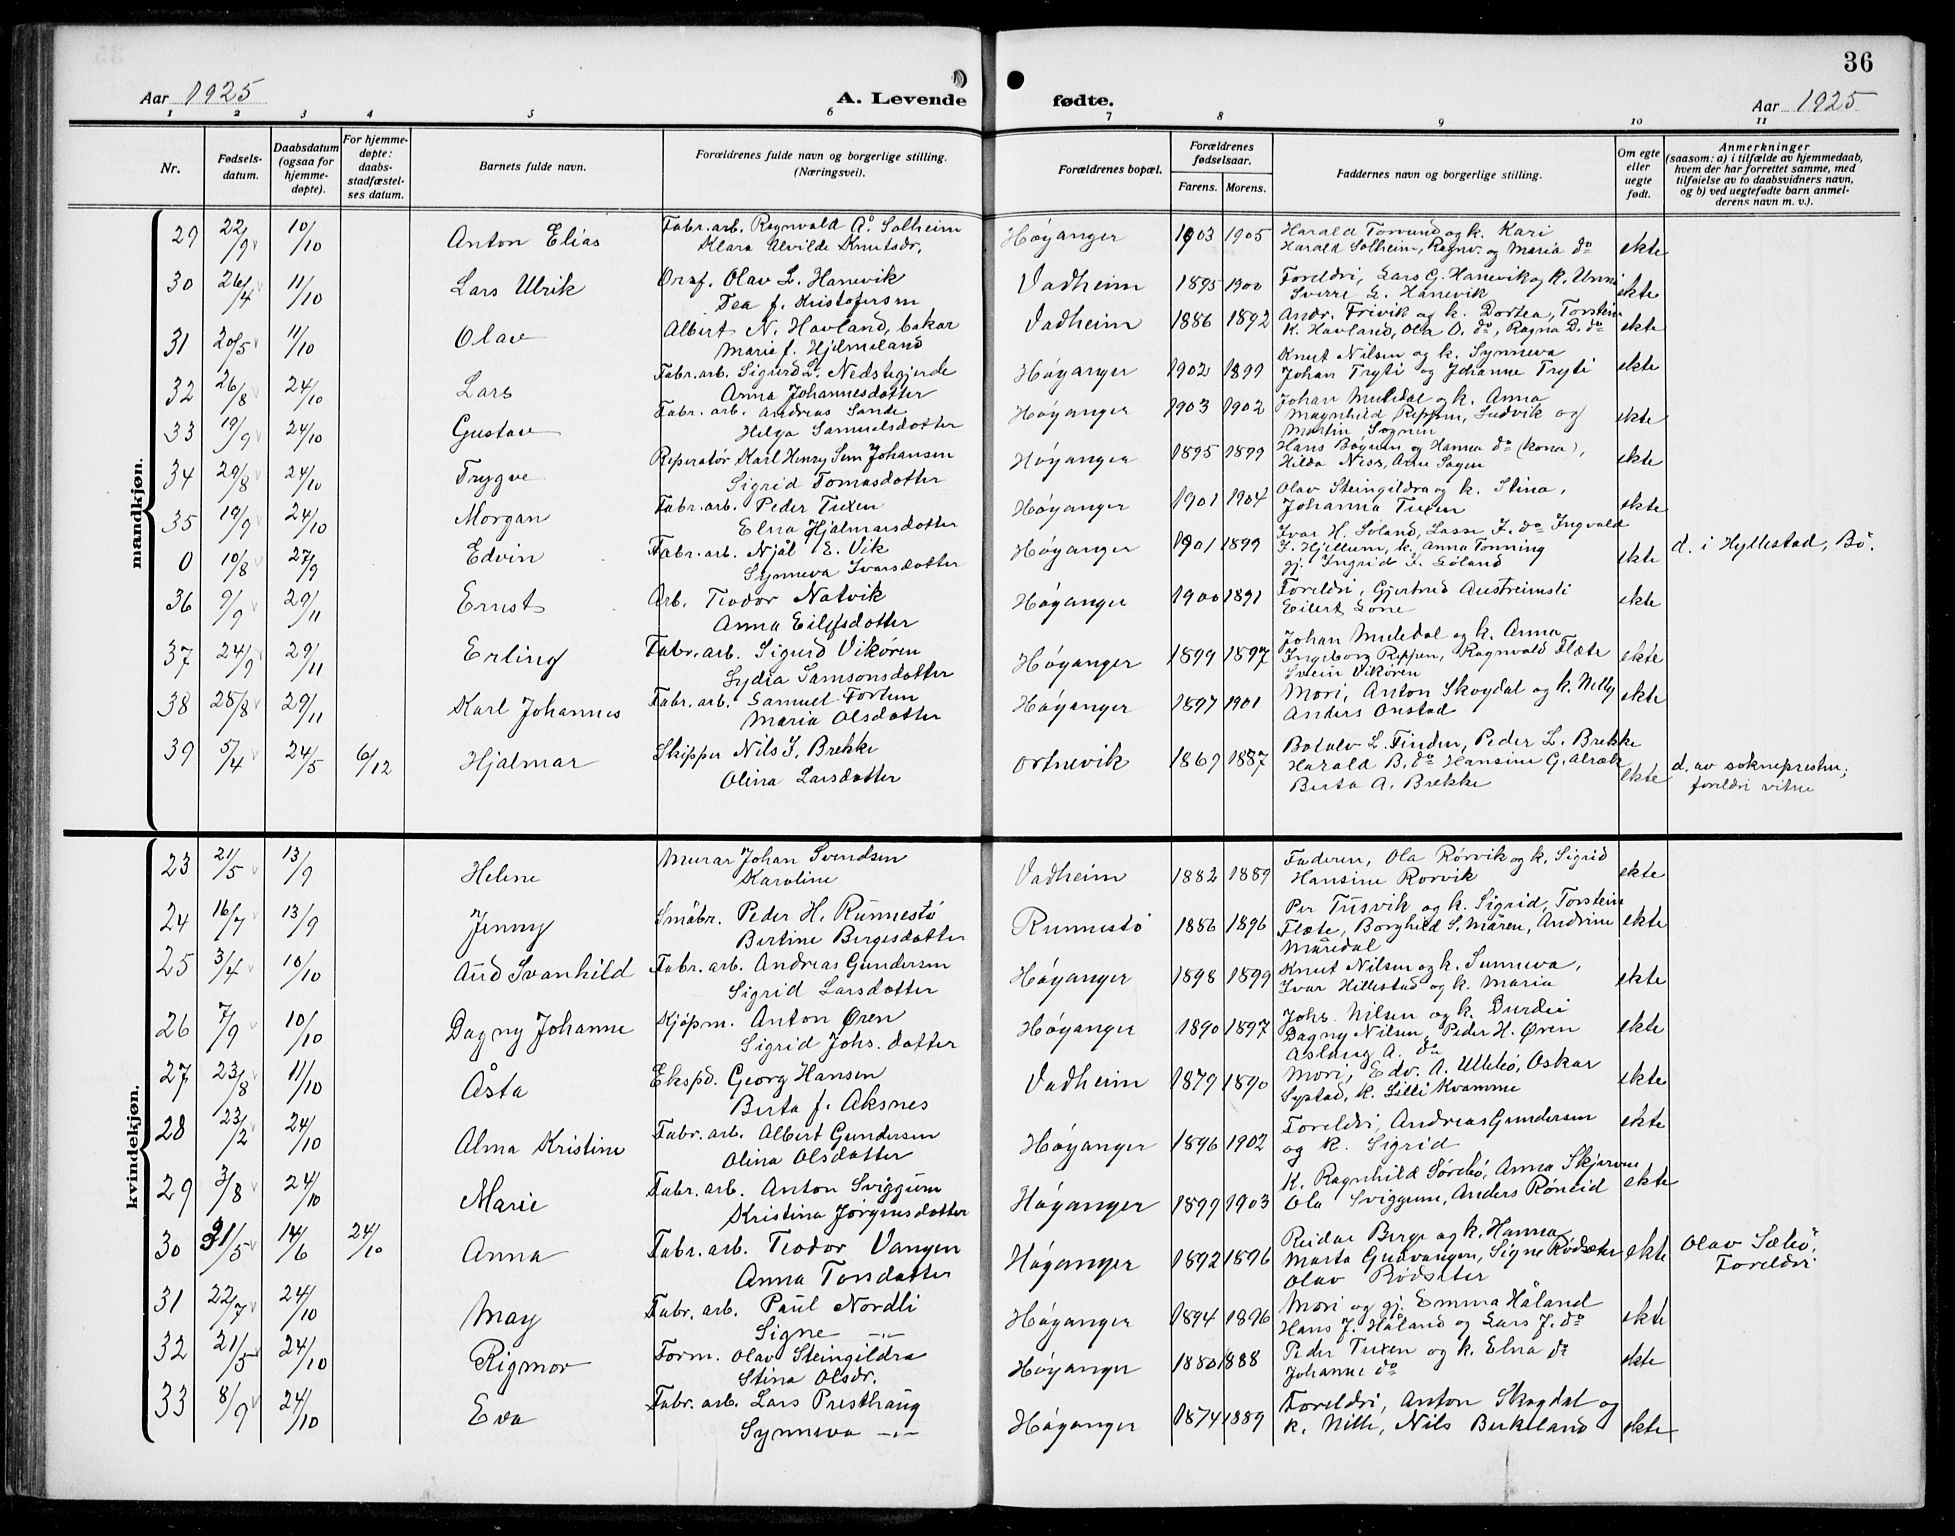 36
Aar 1925
A. Levende fødte.
Aar 1925
1 2 3 4 5 6 7 8 9 10 11
Nr.
Fødselsdatum.
Daabsdatum (ogsaa for hjemmedøpte).
For hjemmedøpte: daabsstadfæstelses datum.
Barnets fulde navn.
Forældrenes fulde navn og borgerlige stilling. (Næringsvei).
Forældrenes bopæl.
Forældrenes fødselsaar.
Farens. Morens.
Faddernes navn og borgerlige stilling.
Om egte eller uegte født.
Anmerkninger (saasom: a) i tilfælde av hjemmedaab, hvem der har forrettet samme, med tilføielse av to daabsvidners navn, og b) ved uegtefødte barn anmelderens navn m. v.).
mandkjøn.
29 22/9 10/10 Anton Elias Fabr.arb. Ragnvald A. Solheim Høyanger 1903 1905 Harald Torvund og k. Kari
Klara Alvilde Knutsdr. Harald Solheim, Ragnv. og Maria do ekte
30 26/4 11/10 Lars Ulrik Olav L. Hanevik Vadheim 1895 1900 Foreldri, Lars G. Hanevik og k. Unni ekte
Tea f. Kristofersen Sverre L. Hanevik
31 20/5 11/10 Olav Albert N. Havland, bakar Vadheim 1886 1892 Andr. Frivik og k. Dortea, Torstein ekte
Marie f. Hjelmeland K. Havland, Ola O. do, Ragna D. do
32 26/8 24/10 Lars Fabr.arb. Sigurd L. Nedstegjerde Høyanger 1902 1899 Knut Nilsen og k. Synneva ekte
Anna Johannesdotter Johan Tryti og Johanne Tryti
33 19/9 24/10 Gustav Fabr. arb. Andreas Sande Høyanger 1903 1902 Johan Muledal og k. Anna ekte
Helga Samuelsdotter Magnhild Reppen, Ludvik og
Martin Sognen
34 29/8 24/10 Trygve Reperatør Karl Henry Sem Johansen Høyanger 1895 1899 Hans Bøyum og Hanna do (kona), ekte
Sigrid Tomasdotter Hilda Ness, Arne Sagen
35 19/9 24/10 Morgan Fabr.arb. Peder Tuxen Høyanger 1901 1904 Olav Steingildra og k. Stina, ekte
Elna Hjalmarsdotter Johanna Tuxen
0 10/8 27/9 Edvin Fabr.arb. Njål E. Vik Høyanger 1901 1899 Ivar H. Søland, Lasse I. do Ingvald ekte d. i Hyllestad, Bø.
Synneva Ivarsdotter I. Hjellum, k. Anna Tonning
gj. Ingrid I. Søland
36 9/9 29/11 Ernst Arb. Teodor Natvik Høyanger 1900 1891 Foreldri, Gjertrud Austreimsli ekte
Anna Eilefsdotter Eilert Lone
37 24/9 29/11 Erling Fabr.arb. Sigurd Vikøren Høyanger 1899 1897 Johan Muledal og k. Anna ekte
Lydia Samsonsdotter Ingeborg Reppen, Ragnvald Flete
Svein Vikøren
38 28/8 29/11 Karl Johannes Fabr. arb. Samuel Fortun Høyanger 1897 1901 Mori, Anton Skogdal og k. Nelly ekte
Maria Olsdotter Anders Onstad
39 5/4 24/5 6/12 Hjalmar Skipper Nils I. Brekke Ortnevik 1869 1887 Botolv L. Finden, Peder L. Brekke ekte d. av sokneprestn;
Olina Larsdotter Harald B. do Hansine G. foreldri vitne
Berta A. Brekke
kvindekjøn.
23 21/5 13/9 Helene Murar Johan Svendsen Vadheim 1882 1889 Faderen, Ola Rørvik og k. Sigrid ekte
Karoline Hansine Rørvik
24 16/7 13/9 Jenny Småbr. Peder H. Runnestø Runnestø 1886 1896 Per Tusvik og k. Sigrid, Torstein ekte
Bertine Bergesdotter Flete, Borghild S. Måren, Andrine
Måredal
25 3/4 10/10 Aud Svanhild Fabr. arb. Andreas Gundersen Høyanger 1898 1899 Knut Nilsen og k. Sunneva, ekte
Sigrid Larsdotter Ivar Hillestad og k. Maria
26 7/9 10/10 Dagny Johanne Kjöpm. Anton Øren Høyanger 1890 1897 Johs. Nilsen og k. Durdei ekte
Sigrid Johs.dotter Dagny Nilsen, Peder H. Øren
Aslaug A. do
27 23/8 11/10 Åsta Ekspd. Georg Hansen Vadheim 1879 1890 Mori, Edv. A. Ullebø, Oskar ekte
Berta f. Aksnes Systad, k. Lilli Kvamme
28 23/2 24/10 Alma Kristine Fabr. arb. Albert Gundersen Høyanger 1896 1902 Foreldri, Andreas Gundersen ekte
Olina Olsdotter og k. Sigrid
29 3/8 24/10 Marie Fabr. arb. Anton Sviggum Høyanger 1899 1903 K. Ragnhild Sørebø, Anna Skjerven ekte
Kristina Jørgensdotter Ola Sviggum, Anders Røneid
30 31/5 14/6 24/10 Anna Fabr. arb. Teodor Vangen Høyanger 1892 1896 Reidar Berge og k. Hanna ekte Olav Sæbö,
Anna Tonsdotter Marta Gudvangen, Signe Rødseter Foreldri
Olav Rødseter
31 22/7 24/10 May Fabr. arb. Paul Nordli Høyanger 1894 1896 Mori og gj. Emma Håland ekte
Signe –"– Hans J. Håland og Lars J. do
32 21/5 24/10 Rigmor Form. Olav Steingildra Høyanger 1880 1888 Peder Tuxen og k. Elna do ekte
Stina Olsdr. Johanne do
33 8/9 24/10 Eva Fabr. arb. Lars Presthaug Høyanger 1874 1889 Foreldri, Anton Skogdal og ekte
Synneva –"– k. Nille, Nils Birkeland